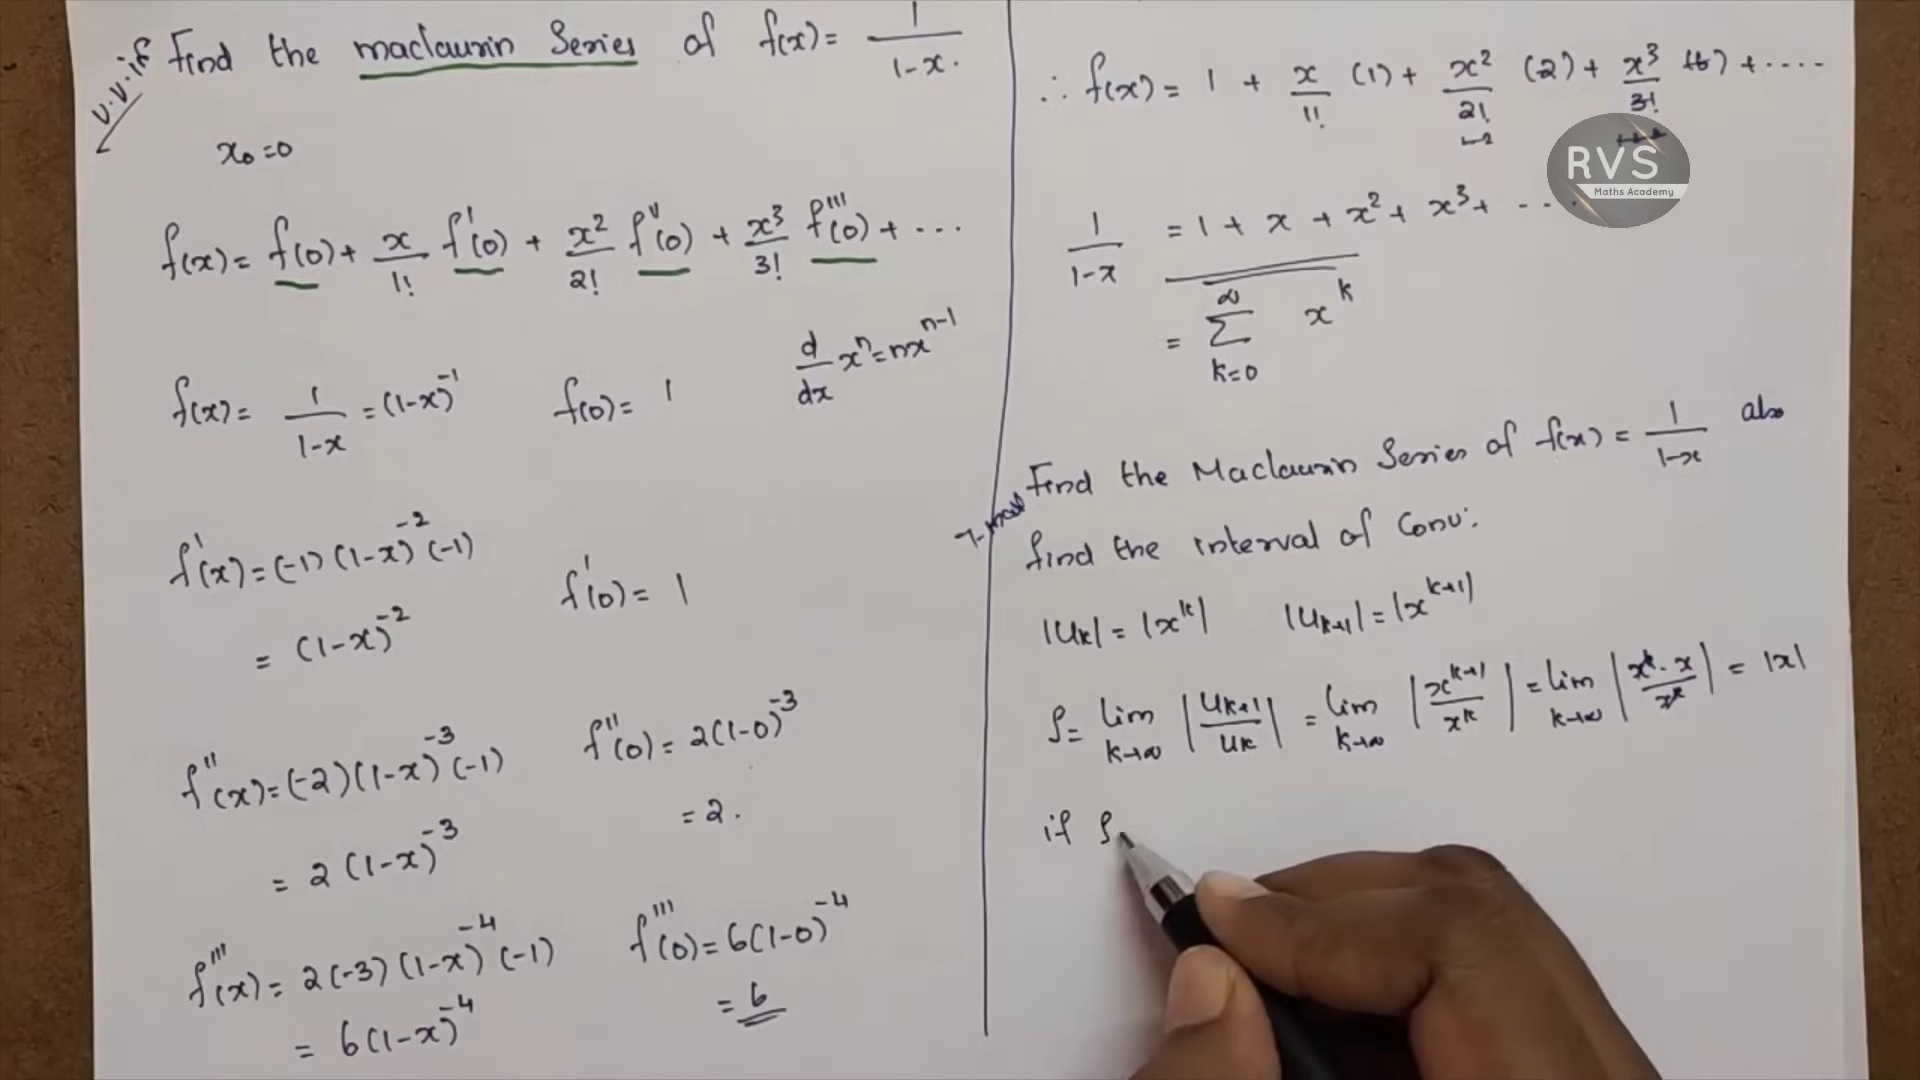 v.v.if Find the maclaurin Series of f(x) = 1/1-x.
x₀ = 0
f(x) = f(0) + x/1! f'(0) + x²/2! f''(0) + x³/3! f'''(0) + ...
d/dx xⁿ = nxⁿ⁻¹
f(x) = 1/1-x = (1-x)⁻¹ f(0) = 1
f'(x) = (-1)(1-x)⁻²(-1) f'(0) = 1
= (1-x)⁻²
f''(x) = (-2)(1-x)⁻³(-1) f''(0) = 2(1-0)⁻³
= 2(1-x)⁻³ = 2.
f'''(x) = 2(-3)(1-x)⁻⁴(-1) f'''(0) = 6(1-0)⁻⁴
= 6(1-x)⁻⁴ = 6
∴ f(x) = 1 + x/1! (1) + x²/2! (2) + x³/3! (6) + ....
RVS
Maths Academy
1/1-x = 1 + x + x² + x³ + ....
= ∞ Σ k=0 xᵏ
Find the Maclaurin Series of f(x) = 1/1-x also
find the interval of Conv:
|uₖ| = |xᵏ| |uₖ₊₁| = |xᵏ⁺¹|
ρ = lim k→∞ |uₖ₊₁/uₖ| = lim k→∞ |xᵏ⁺¹/xᵏ| = lim k→∞ |xᵏ·x/xᵏ| = |x|
if ρ